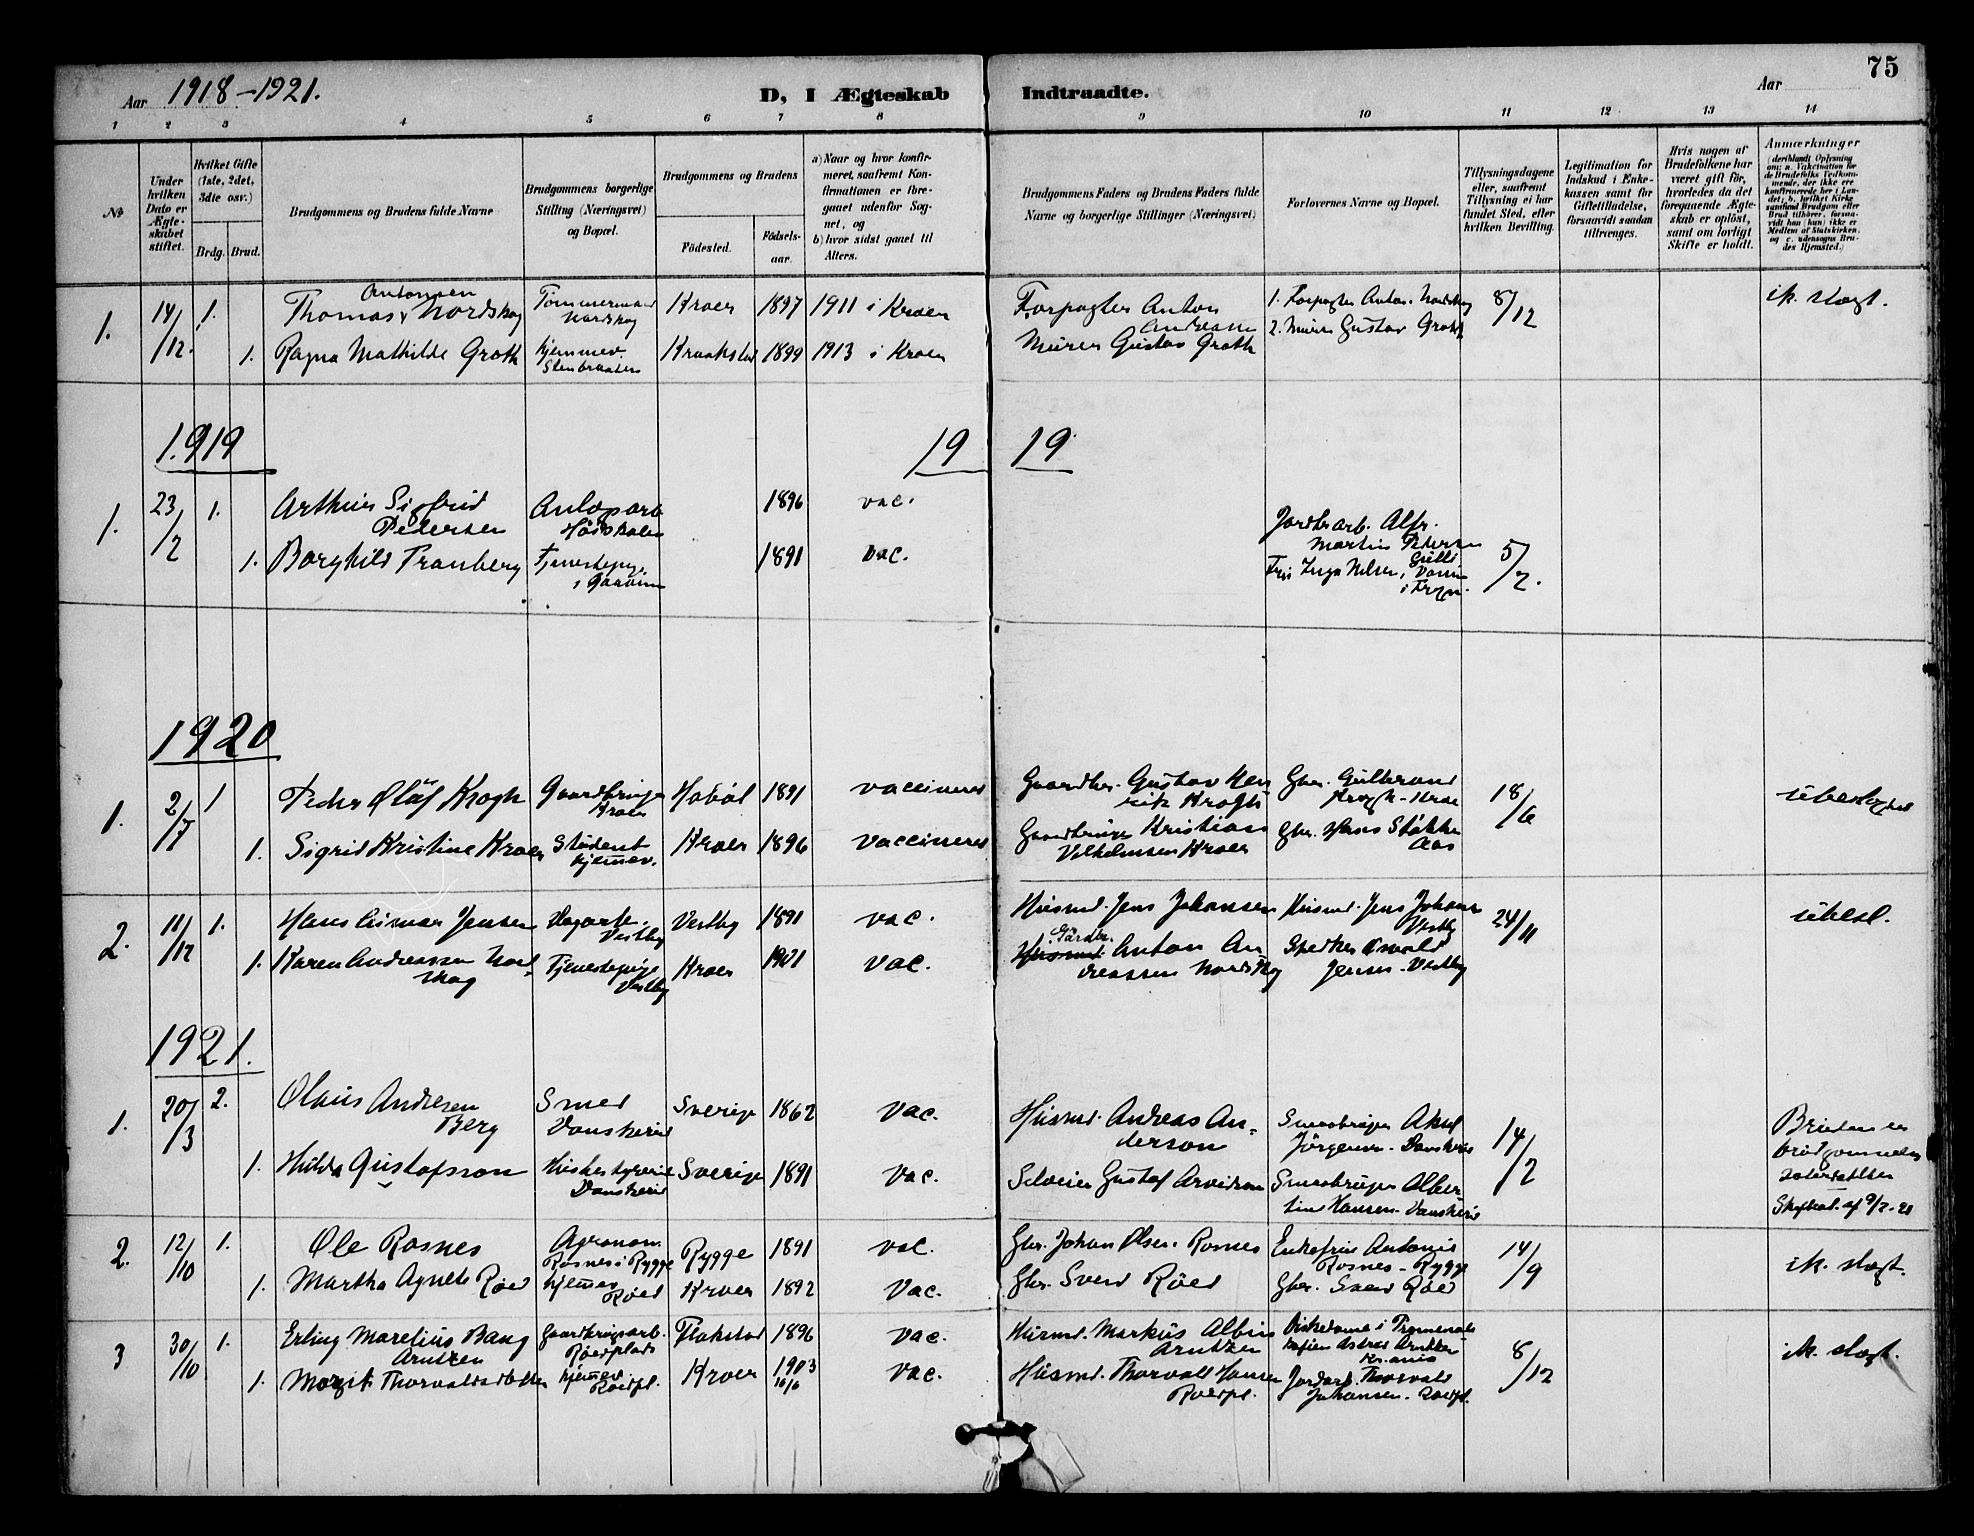 75
Aar 1918-1921.
D, I Ægteskab Indtraadte.
Aar
1 2 3 4 5 6 7 8 9 10 11 12 13 14
№
Under hvilken Dato er Ægteskabet stiftet.
Hvilket Gifte (1ste, 2det, 3die osv.)
Brdg. Brud.
Brudgommens og Brudens fulde Navne
Brudgommens borgerlige Stilling (Næringsvei) og Bopæl.
Brudgommens og Brudens
Födested. Födselsaar.
a) Naar og hvor konfirmeret, saafremt Konfirmationen er foregaaet udenfor Sognet, og
b) hvor sidst gaaet til Alters.
Brudgommens Faders og Brudens Faders fulde Navne og borgerlige Stillinger (Næringsvei)
Forlovernes Navne og Bopæl.
Tillysningsdagene eller, saafremt Tillysning ei har fundet Sted, efter hvilken Bevilling.
Legitimation for Indskud i Enkekassen samt for Giftetilladelse, forsaavidt saadan tiltrænges.
Hvis nogen af Brudefolkene har været gift för, hvorledes da det foregaaende Ægteskab er oplöst, samt om lovligt Skifte er holdt.
Anmærkninger
1. 14/12. 1. Thomas Antonsen Nordskog Tømmermand Nordskog Kroer 1897 1911 i Kroer Forpagter Anton Andreasen 1. Forpagter Anton Nordskog 8/12 ik. slægt.
1. Ragna Mathilde Groth hjemmev. Stenbraaten Kraakstad 1899 1913 i Kroer Murer Gustav Groth 2. Murer Gustav Groth
1919 19 19
1. 23/2 1. Arthur Sigfrid Pedersen Høiskolen 1896 vac. Jordbr.arb. Alfr. Martin Petersen 5/2.
1. Borghild Tranberg Tjenestepige 1891 vac. Inga Nilsen,
1920
1. 2/7 1 Peder Olaf Krogh Gaardbruger Kroer Hobøl 1891 vaccineret Gaardbr. Gustav Henrik Krogh Gbr. Gulbrand Krogh - Kroer 18/6 ubeslægtet
1. Sigrid Kristine Kroer Student hjemmev. Kroer 1896 vaccineret Gaardbruger Kristian Vilhelmsen Kroer Gbr. Hans Stökken Aas
2. 11/12 1. Hans Jensen Dagarb. Vestby Vestby 1891 vac. Husmd. Jens Johansen Husmd. Jens Johansen Vestby 24/11 ubesl.
1. Karen Andreassen Nordskog Tjenestepige Vestby Kroer 1901 vac. Gårdbr. Anton Andreassen Nordskog Osvald Jensen - Vestby
1921.
1. 20/3 2. Olaus Andresen Berg Smed Danskerud Sverige 1862 vac. Husmd. Andreas Anderson Smaabruger Aksel Jørgensen - Danskerud 14/2 Bruden er brudgommens søsterdatter
1. Hilda Gustafsson Husbestyrerin Danskerud Sverige 1891 vac. Gustaf Arvidson Smaabruger Albertin Hansen - Danskerud
2. 12/10 1. Ole Rosnes Agronom Rosnes i Rygge Rygge 1891 vac. Gbr. Johan Olsen Rosnes Enkefrue Antonie Rosnes - Rygge 14/9 ik. slægt.
1. Martha Agnete Røed hjemmev. Røed Kroer 1892 vac. Gbr. Svend Røed Gbr. Svend Røed
3 30/10 1. Erling Marelius Bang Arntzen Gaardbrugsarb. Røedplads Flakstad 1896 vac. Husmd. Markus Albin Arntzen Astrid Arntzen Kr.ania 8/12 ik. slægt.
1. Margit Thorvaldsdatter hjemmev Roedpl. Kroer 1903 16/6 vac. Husmd. Thorvald Hansen Roedpl. Jordarb. Thorvald Johansen - Roedpl.